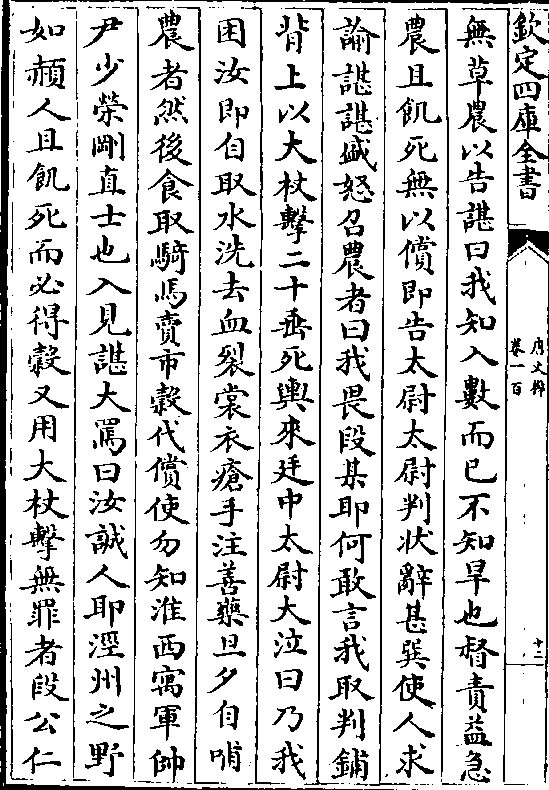 欽定四庫全書
唐文粹
卷一百
十二
無草農以告諶曰我知入數而已不知旱也督責益急
農且飢死無以償即告太尉太尉判狀辭甚巽使人求
諭諶諶盛怒召農者曰我畏段某耶何敢言我取判鋪
背上以大杖擊二十垂死輿來廷中太尉大泣曰乃我
困汝即自取水洗去血裂裳衣瘡手注善藥旦夕自哺
農者然後食取騎馬賣市榖代償使勿知淮西寓軍帥
尹少榮剛直士也入見諶大罵曰汝誠人耶涇州之野
如頳人且飢死而必得榖又用大杖擊無罪者段公仁